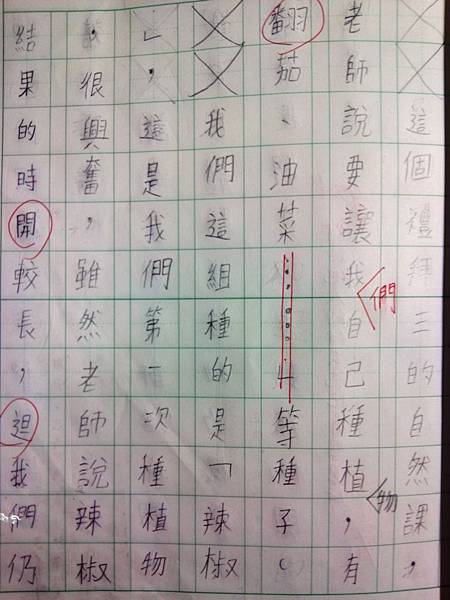 這個禮拜三的自然課，
老師說要讓我們自己種植物，有
翻茄、油菜……等種子。
我們這組種的是「辣椒
」，這是我們第一次種植物
，很興奮，雖然老師說辣椒
結果的時開較長，我們仍